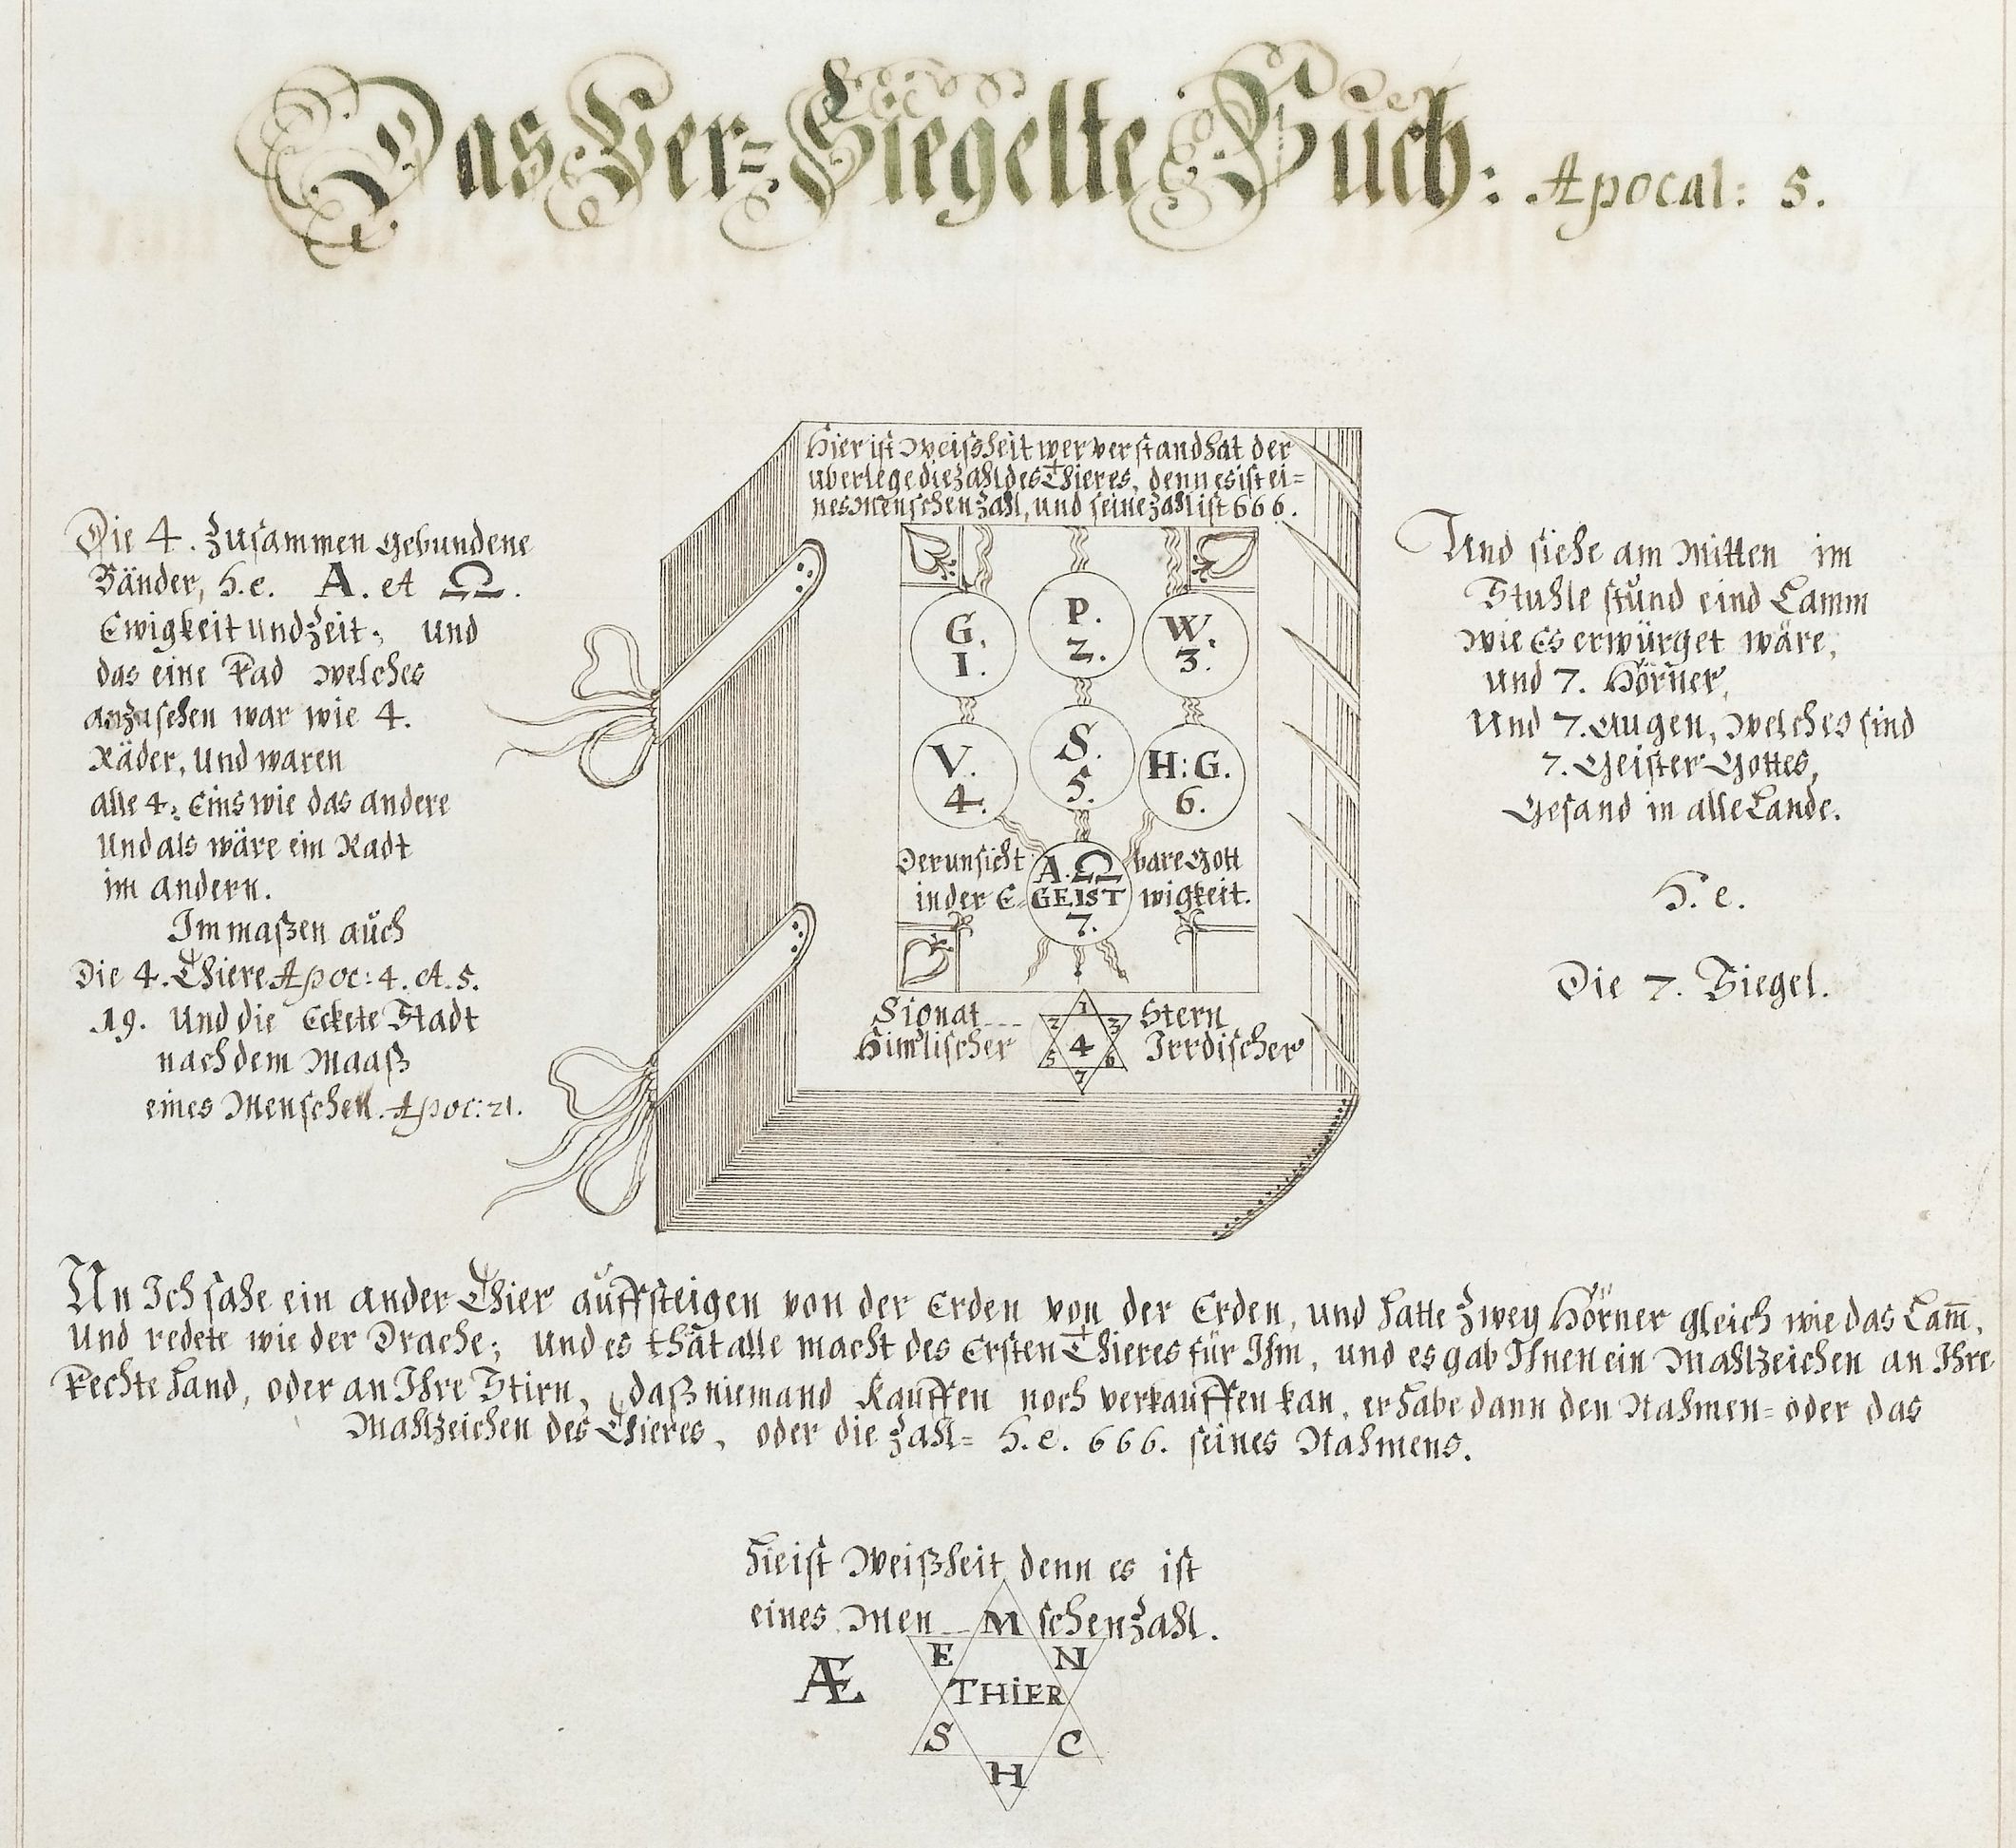 Das Ver= Siegelte Buch: Apocal: 5.
Hier ist Weißheit wer verstand hat der
uberlege die zahl des Thieres, denn es ist ei=
nes Menschen Zahl, und seine zahl ist 666.
Die 4. zusammen gebundene
Bänder, h.e. A. et Ω.
Ewigkeit und Zeit; und
das eine Rad welches
anzusehen war wie 4.
Räder, und waren
alle 4: Eins wie das andere
Und als wäre ein Radt
im andern.
Im maßen auch
Die 4. Thiere Apoc: 4. et. 5.
19. Und die Eckete Stadt
nach dem Maaß
eines Menschen. Apoc: 21.
G. 1.
P. 2.
W. 3.
V. 4.
S. 5.
H: G. 6.
Der unsicht A. Ω bare Gott
in der E= GEIST wigkeit.
7.
Sionat Stern
Him̄lischer Irrdischer
1
2 3
4
5 6
7
Und siehe am Mitten im
Stuhle stund eind Lamm
wie Es erwürget wäre,
und 7. Hörner,
Und 7. Augen, welches sind
7. Geister Gottes,
Gesand in alle Lande.
h. e.
Die 7. Siegel.
Un Ich sahe ein ander Thier auffsteigen von der Erden von der Erden, und hatte Zwey Hörner gleich wie das Lam̄,
Und redete wie der Drache; und es thät alle macht des Ersten Thieres für Ihm, und es gab Ihnen ein Mahlzeichen an Ihre
Rechte hand, oder an Ihre Stirn, daß niemand Kauffen noch verkauffen kan, er habe dann den Nahmen= oder das
Mahlzeichen des Thieres, oder die Zahl= h. e. 666. seines Nahmens.
hie ist Weißheit denn es ist
eines Men M schen Zahl.
E N
Æ THiER
S C
H